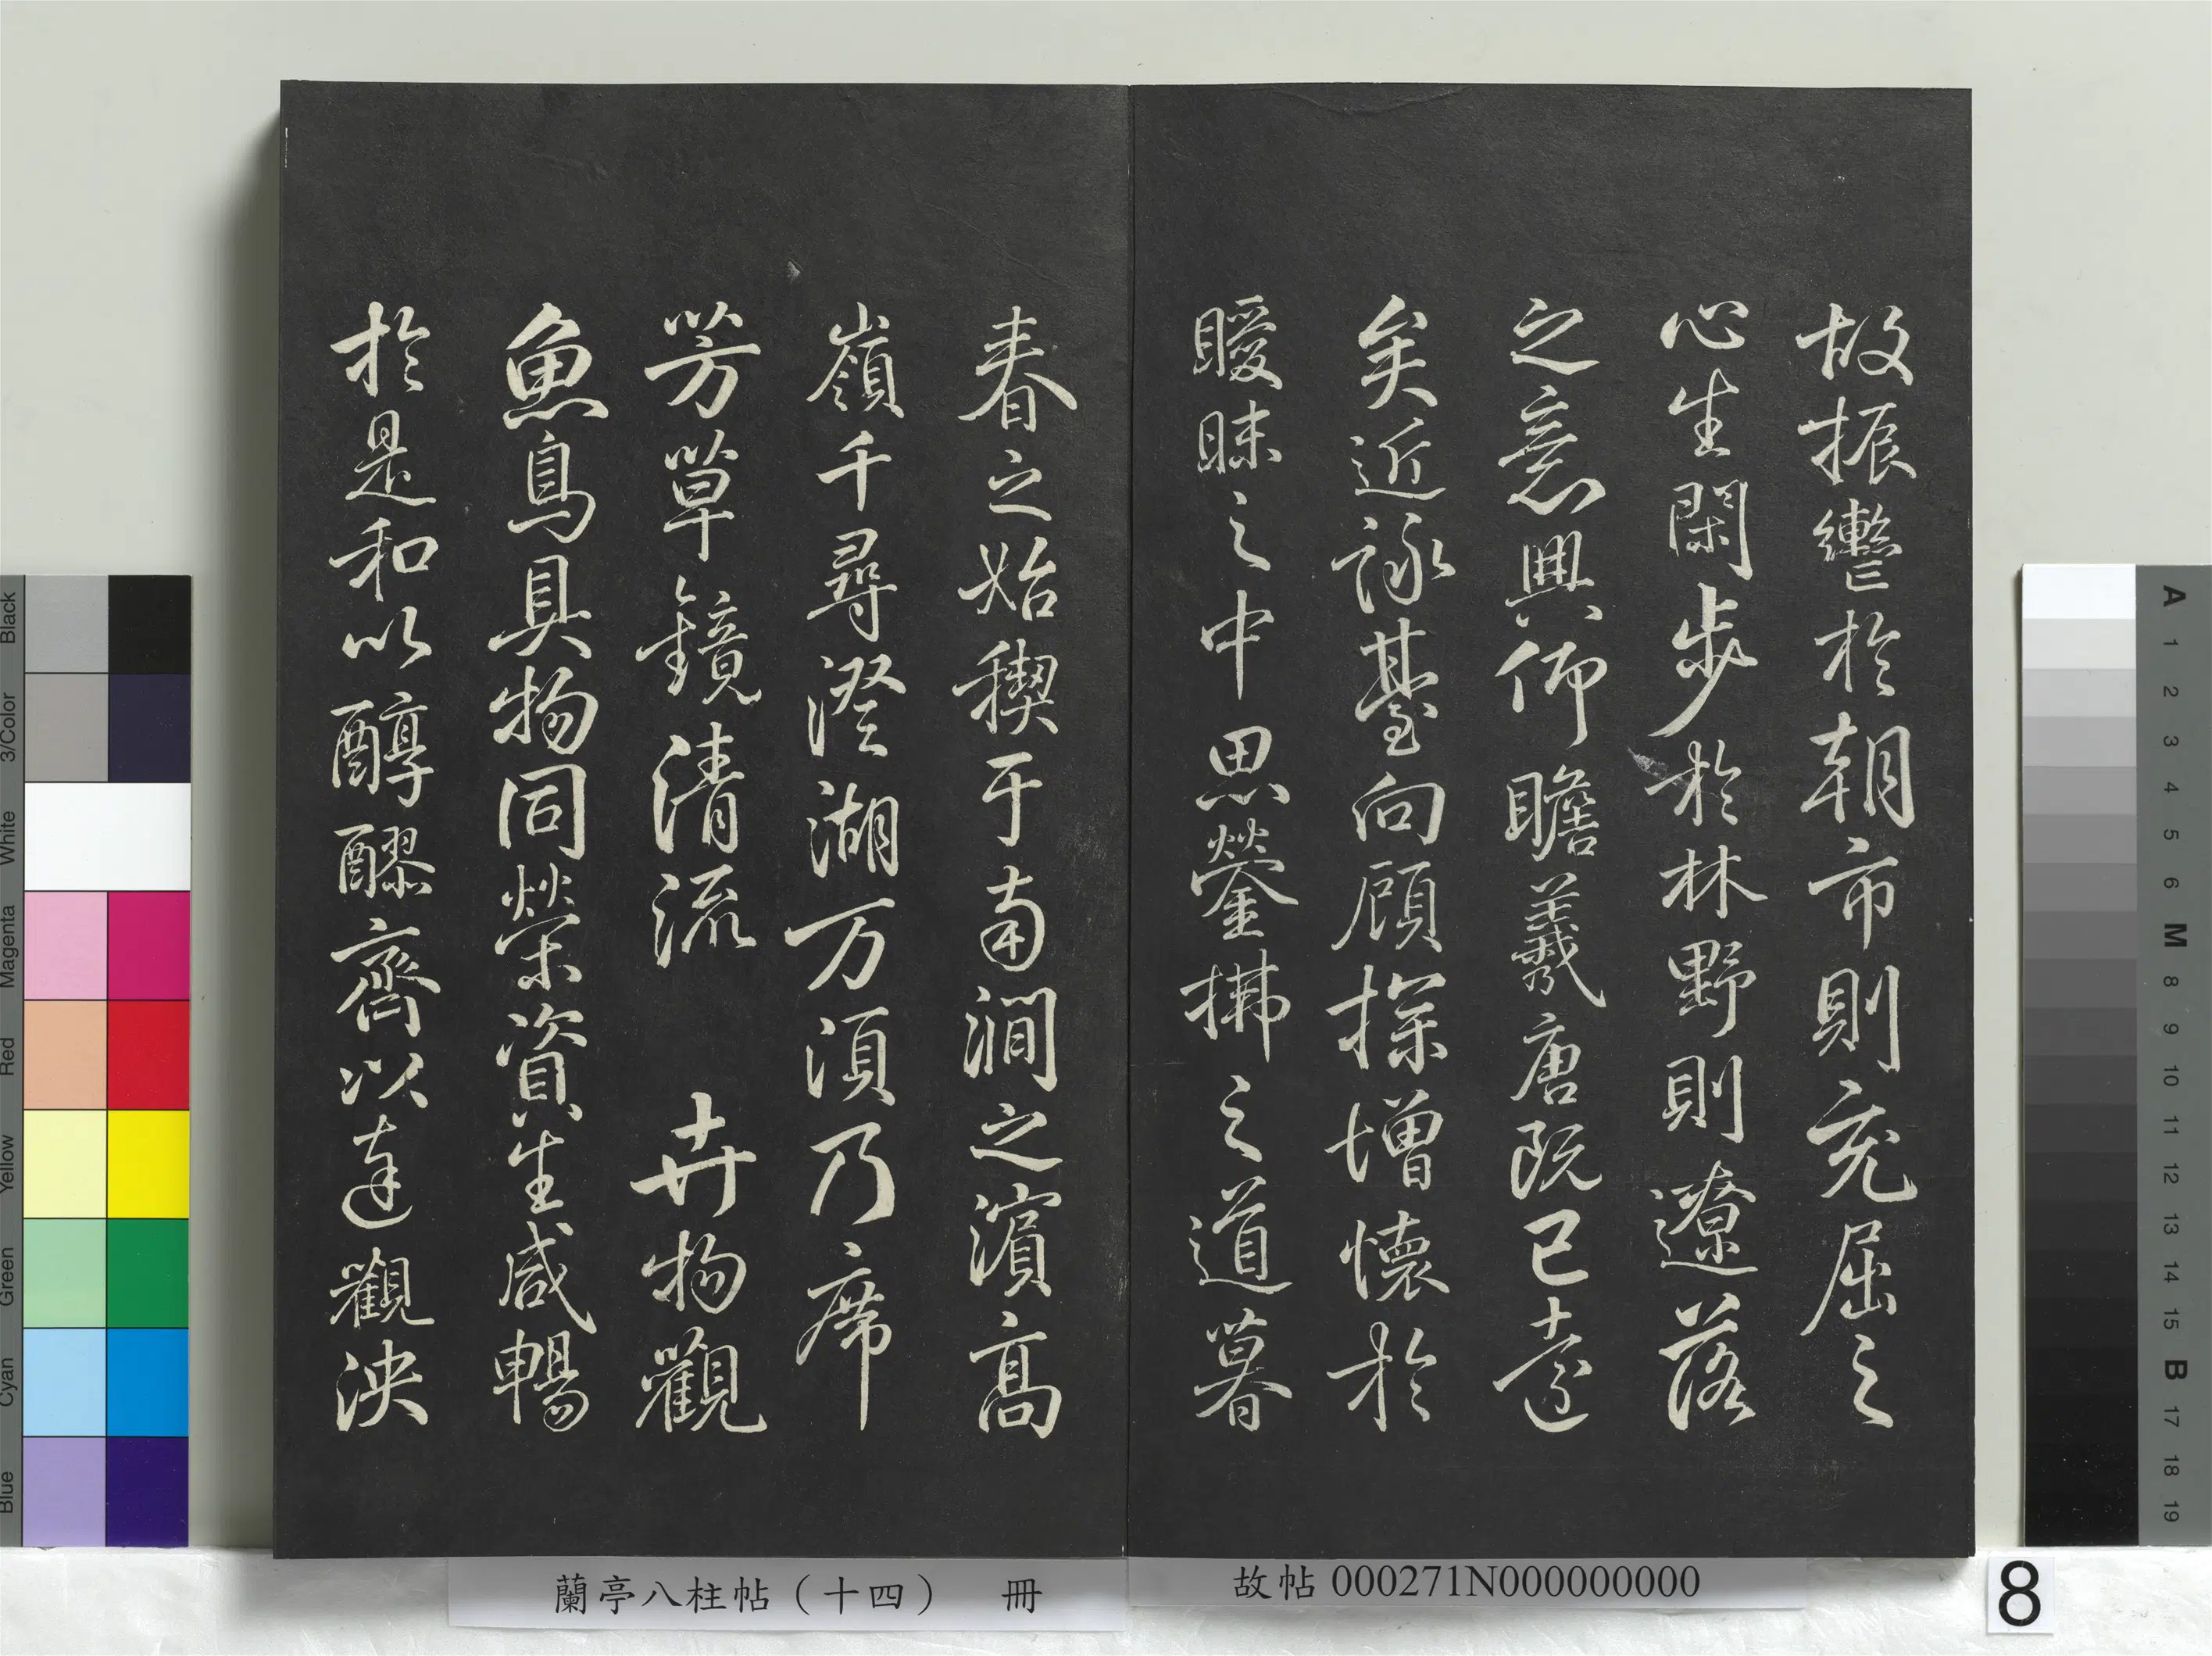 故振轡於朝市則充屈之
心生閑步於林野則遼落
之意興仰瞻羲唐既已遠
矣近詠臺向顧探增懷於
曖昧之中思鎣拂之道暮
春之始禊于南澗之濱高
嶺千尋澄湖万頃乃席
芳草鏡清流 卉物觀
魚鳥具物同榮資生咸暢
於是和以醇醪齊以達觀泱
蘭亭八柱帖（十四） 冊
故帖 000271N000000000
8
Black
3/Color
White
Magenta
Red
Yellow
Green
Cyan
Blue
A
1
2
3
4
5
6
M
8
9
10
11
12
13
14
15
B
17
18
19